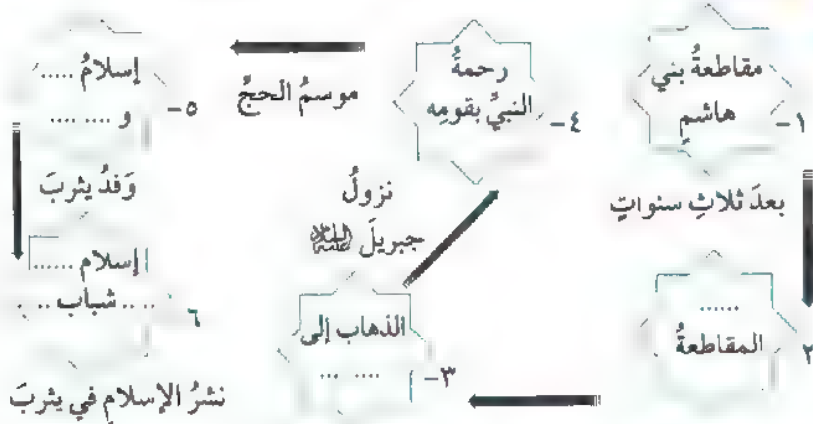 ١-
مقاطعةُ بني
هاشمٍ
بعدَ ثلاثِ سنواتٍ
٢
......
المقاطعةُ
٣-
الذهاب إلى
... ....
نزولُ
جبريلَ عليه السلام
٤-
رحمةُ
النبيِّ بقومِه
موسمُ الحجِّ
٥-
إسلامُ .....
و .... ...
وَفدُ يثربَ
٦
إسلام ......
.... شباب ....
نشرُ الإسلامِ في يثربَ